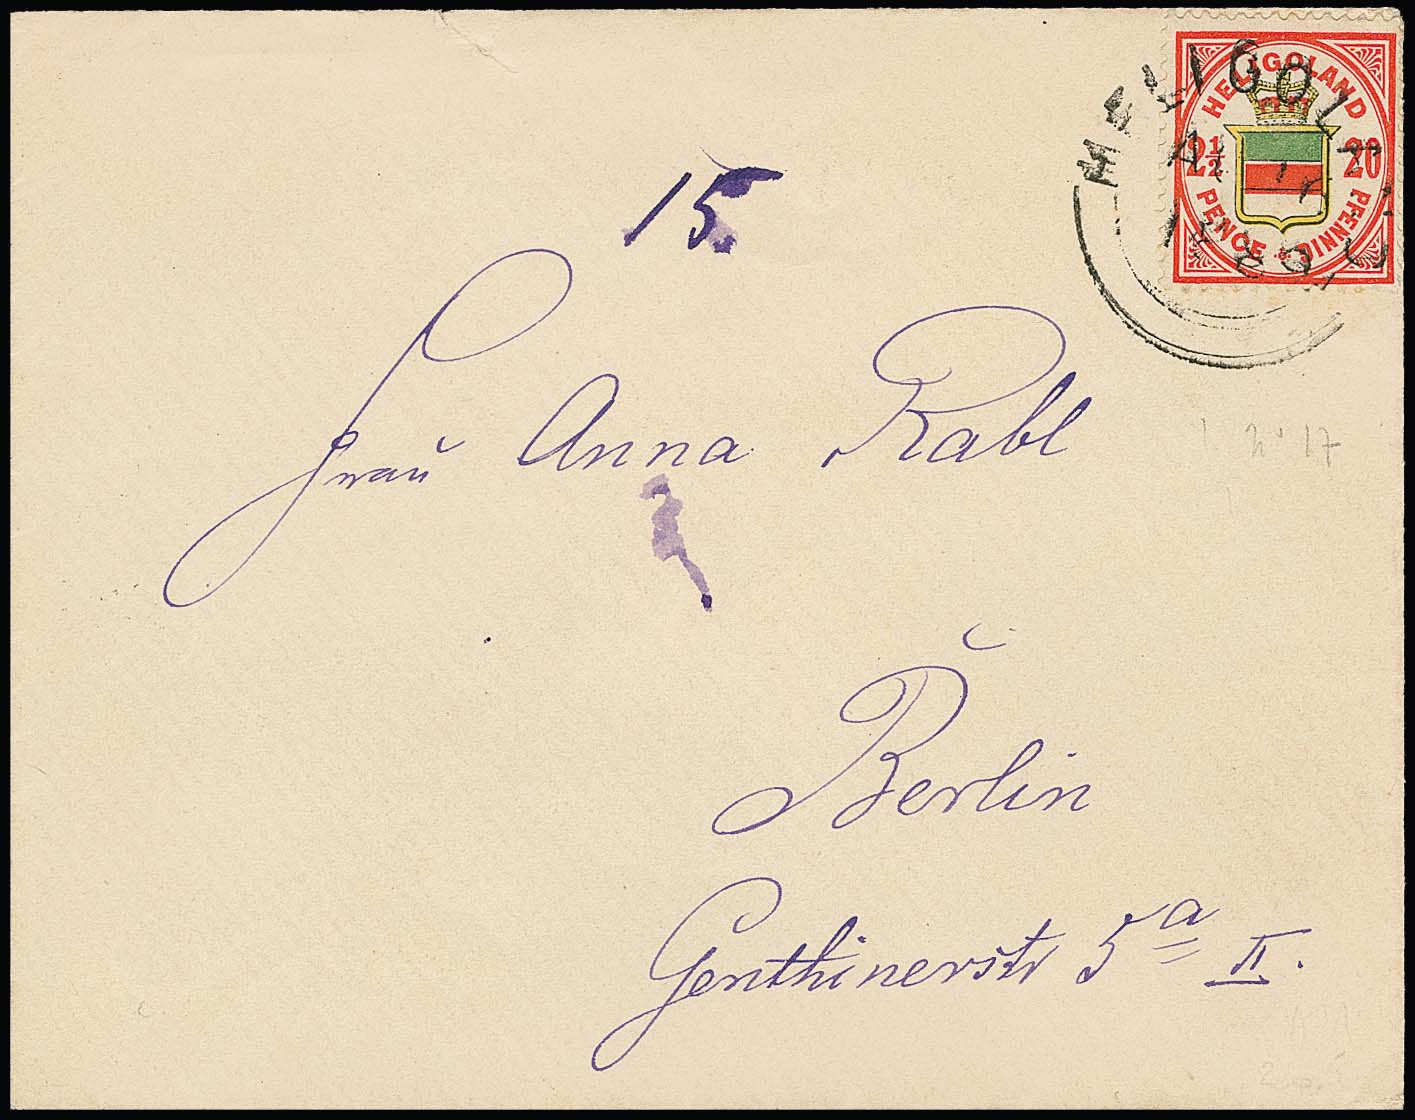 HELIGOLAND
2½ 20
PENCE PFENNIG
HELIGOLAND
15
Frau Anna Rabl
No 17
Berlin
Genthinerstr 5a II.